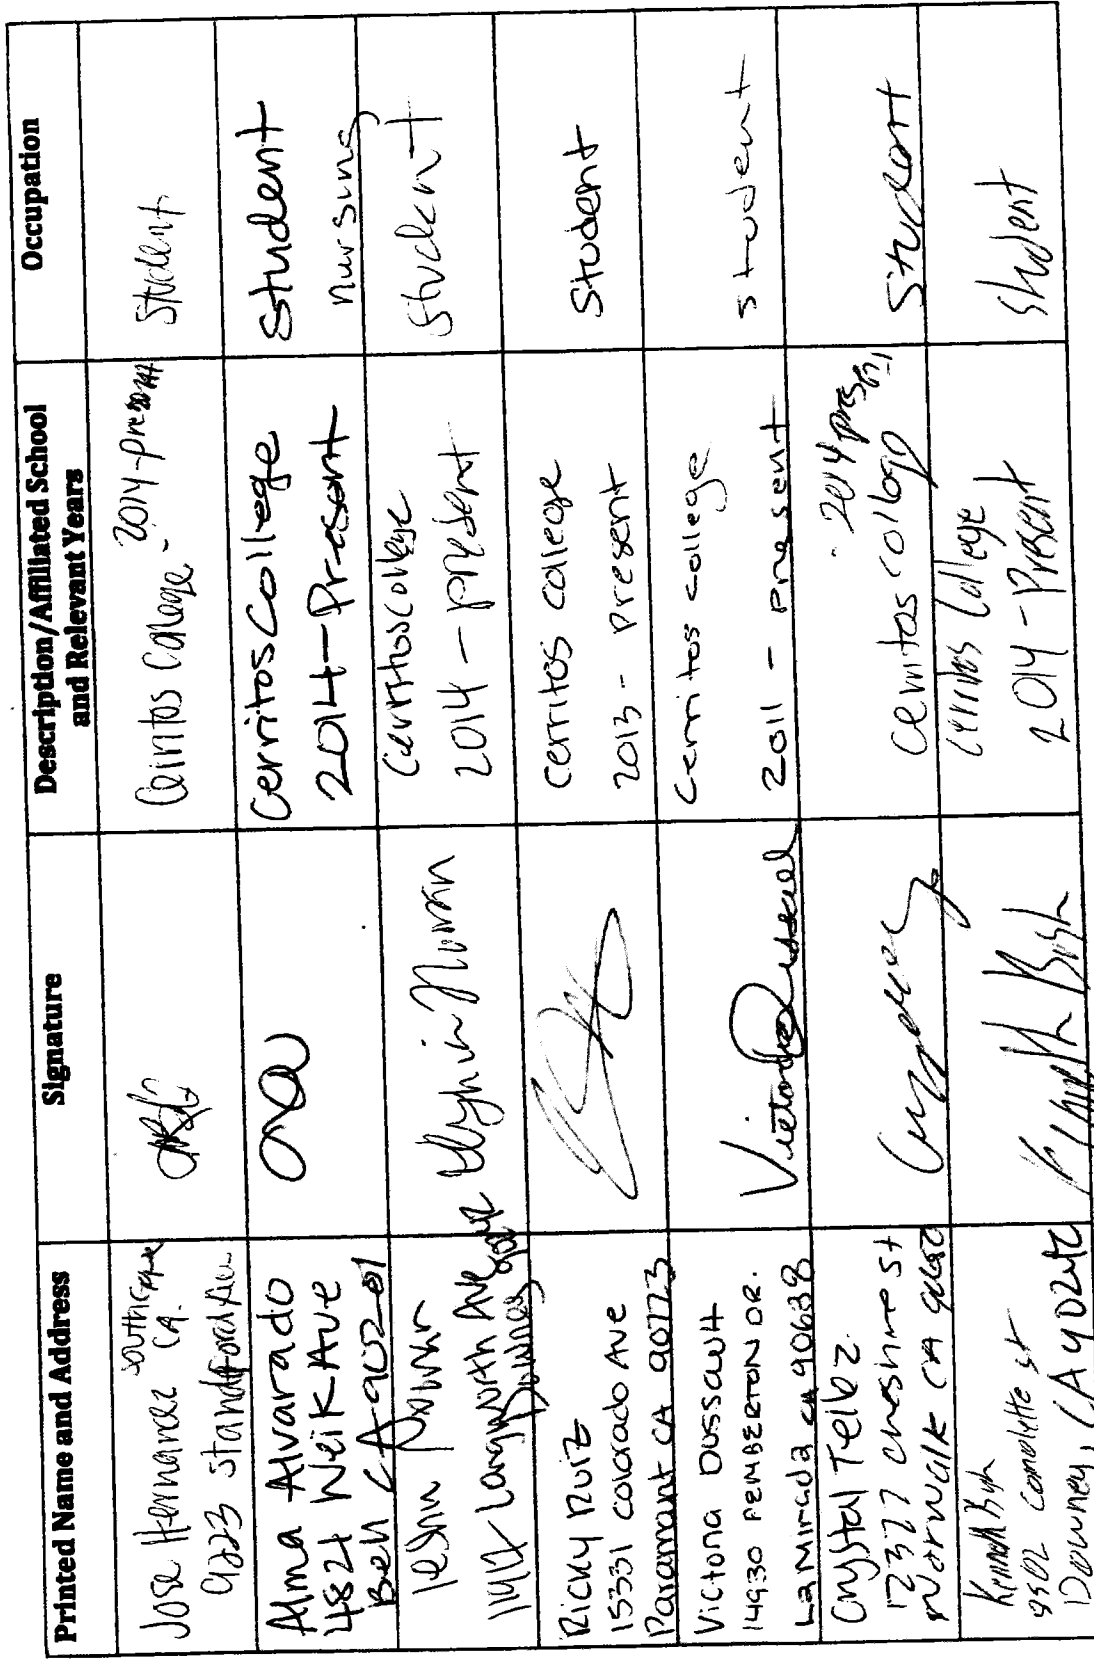 Printed Name and Address
Signature
Description/Affiliated School
and Relevant Years
Occupation
Jose Hernandez
South Gate
CA.
9223 Standford Ave
Cerritos College - 2014-present
Student
Alma Alvarado
4821 Weik Ave
Bell CA 90201
Cerritos College
2014-Present
Student
nursing
Langworth Ave
Downey
Cerritos College
2014 - present
Student
Ricky Ruiz
15331 Colorado Ave
Paramant CA 90723
Cerritos College
2013 - Present
Student
Victoria Dussault
14930 PEMBERTON DR.
La Mirada CA 90638
Victoria Dussault
Cerritos college
2011 - present
student
Crystal Tellez
12327 Cheshire St
Norwalk CA 90650
2014 present
Cerritos College
Student
Kenneth
9502 St
Downey, CA 90242
Kenneth
Cerritos College
2014 - Present
Student